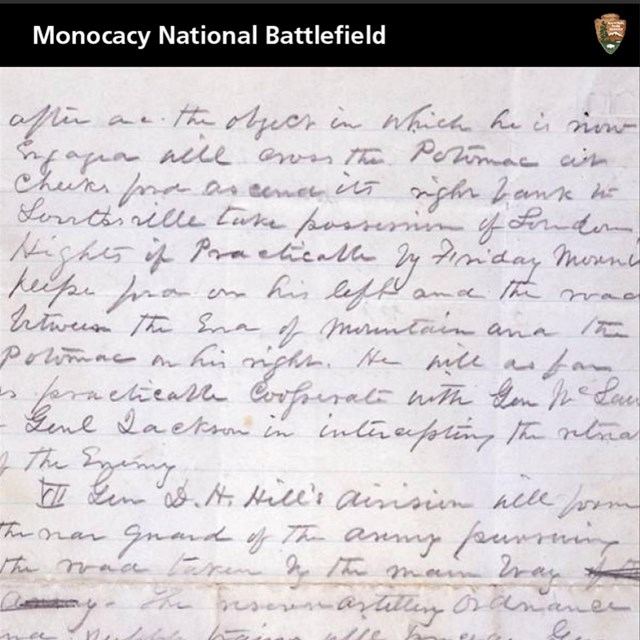 Monocacy National Battlefield
after acc. the object in which he is now
Engaged will cross the Potomac at
Cheeks ford ascend its right bank to
Lovettsville take possession of Loudon
Hights if Practicable by Friday Morni
Keeps ford on his left and the road
between the End of Mountain and the
Potomac on his right. He will as far
s practicable Cooperate with Gen McLaw
Genl Jackson in intercepting the retrea
f the Enemy
VII Gen D. H. Hill's division will form
the rear guard of the army pursuing
the road taken by the main body
The reserve artillery Ordnance
supply trains will precede Gen